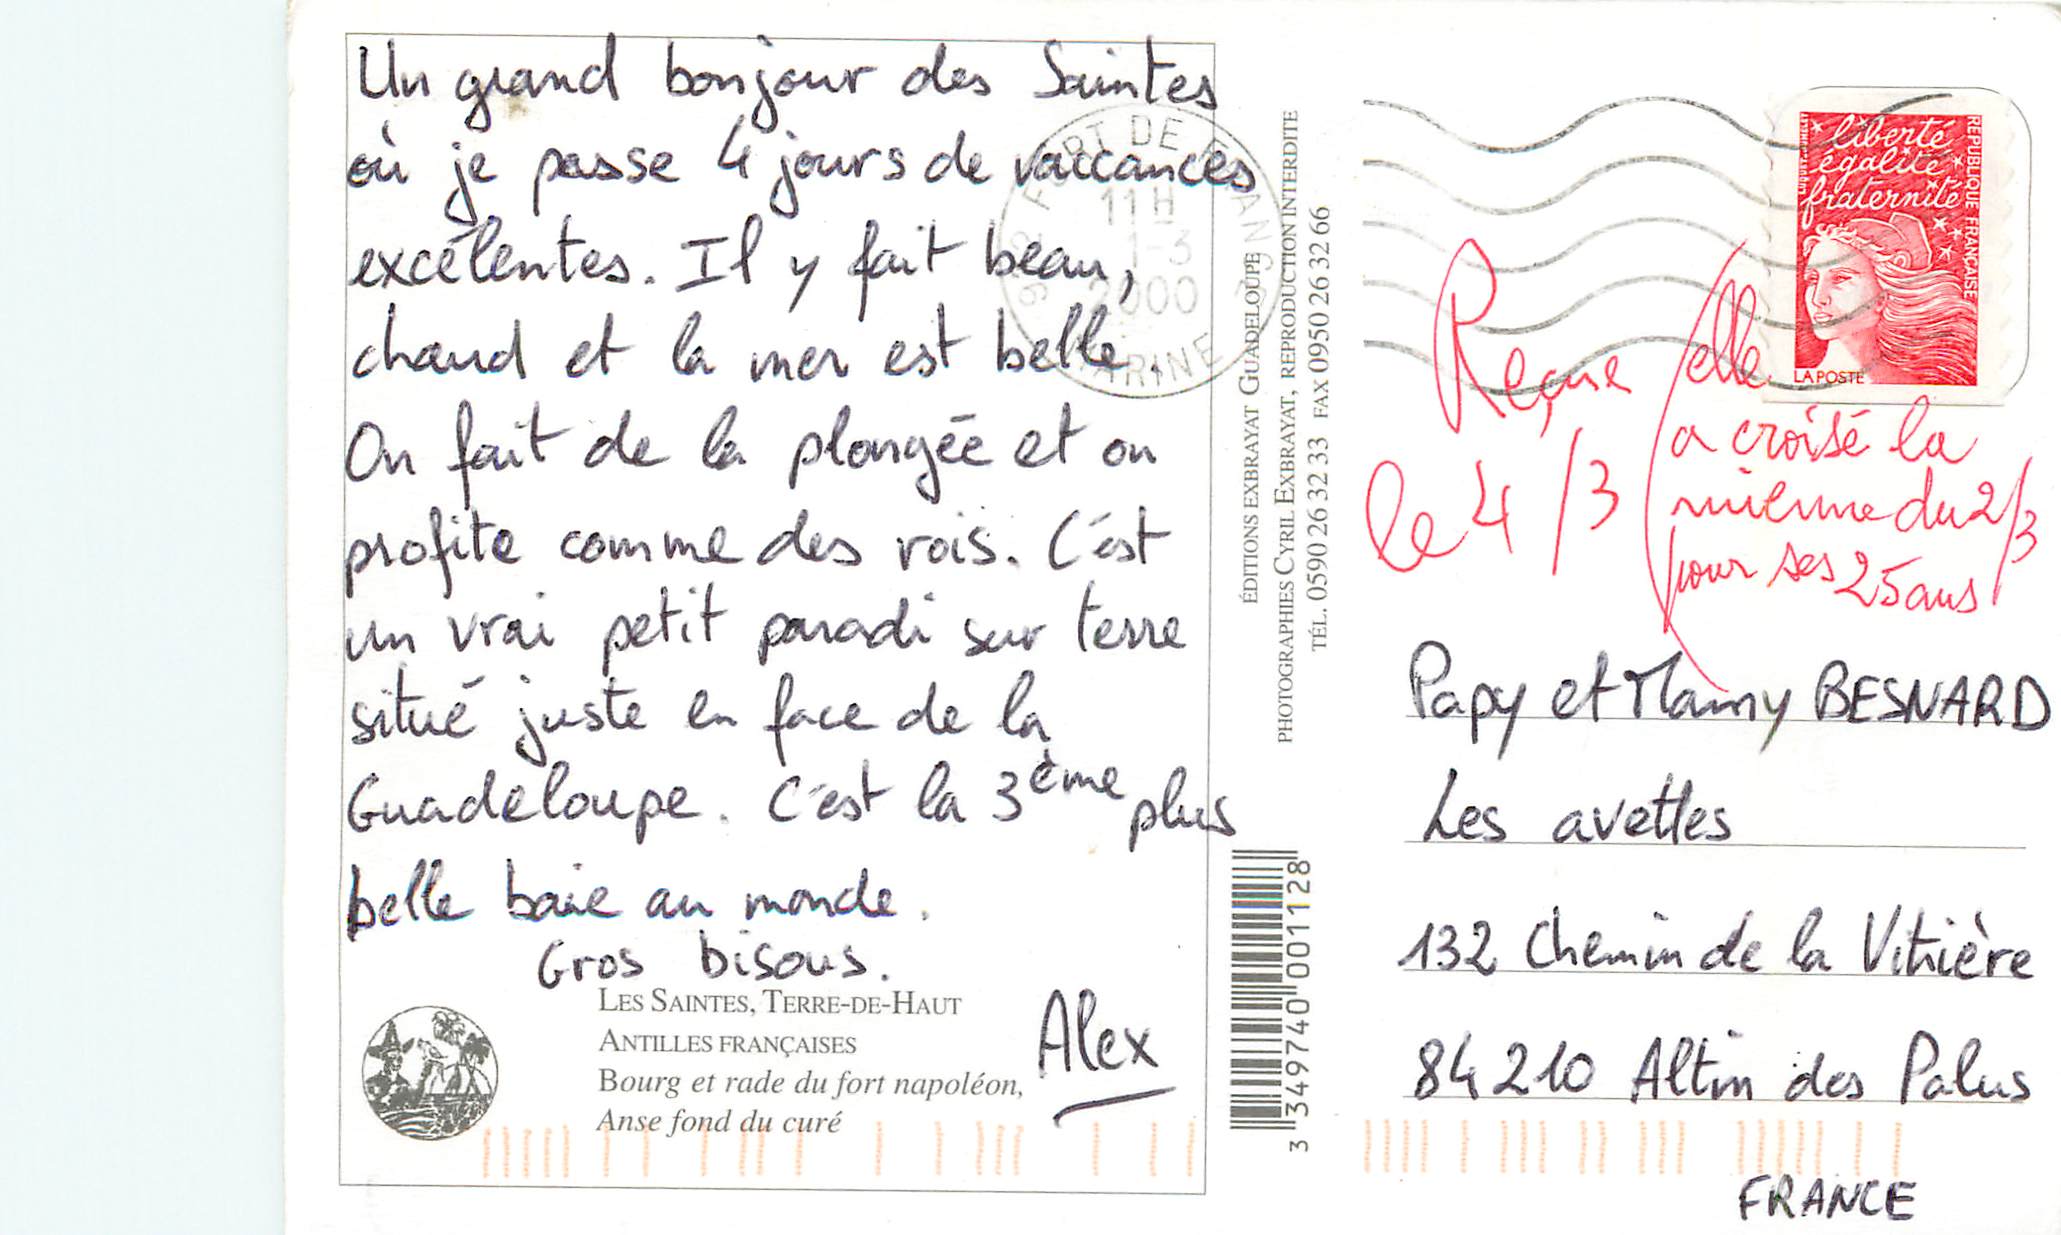 Un grand bonjour des Saintes
où je passe 4 jours de vaccances
excélentes. Il y fait beau,
chaud et la mer est belle.
On fait de la plongée et on
profite comme des rois. C'est
un vrai petit paradi sur terre
situé juste en face de la
Guadeloupe. C'est la 3ème plus
belle baie au monde.
Gros bisous.
Alex
LES SAINTES, TERRE-DE-HAUT
ANTILLES FRANÇAISES
Bourg et rade du fort napoléon,
Anse fond du curé
FORT DE FRANCE
11H
1-3
2000
MARINE
ÉDITIONS EXBRAYAT GUADELOUPE
PHOTOGRAPHIES CYRIL EXBRAYAT, REPRODUCTION INTERDITE
TÉL. 0590 26 32 33 FAX 0950 26 32 66
3 349740 001128
liberté
égalité
fraternité
REPUBLIQUE FRANÇAISE
LA POSTE
Reçue
le 4/3
(elle
a croisé la
mienne du 2/3
pour ses 25 ans
Papy et Mamy BESNARD
Les avettes
132 Chemin de la Vitrière
84210 Altin des Palus
FRANCE